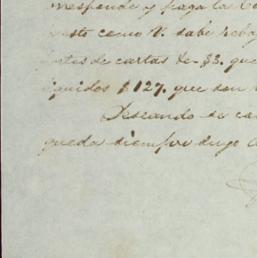 rresponde y paga las Co
nesto como V. sabe reba
rtes de cartas de $3. que
iquidos $127. que son
Deseando se ca
queda siempre suyo a